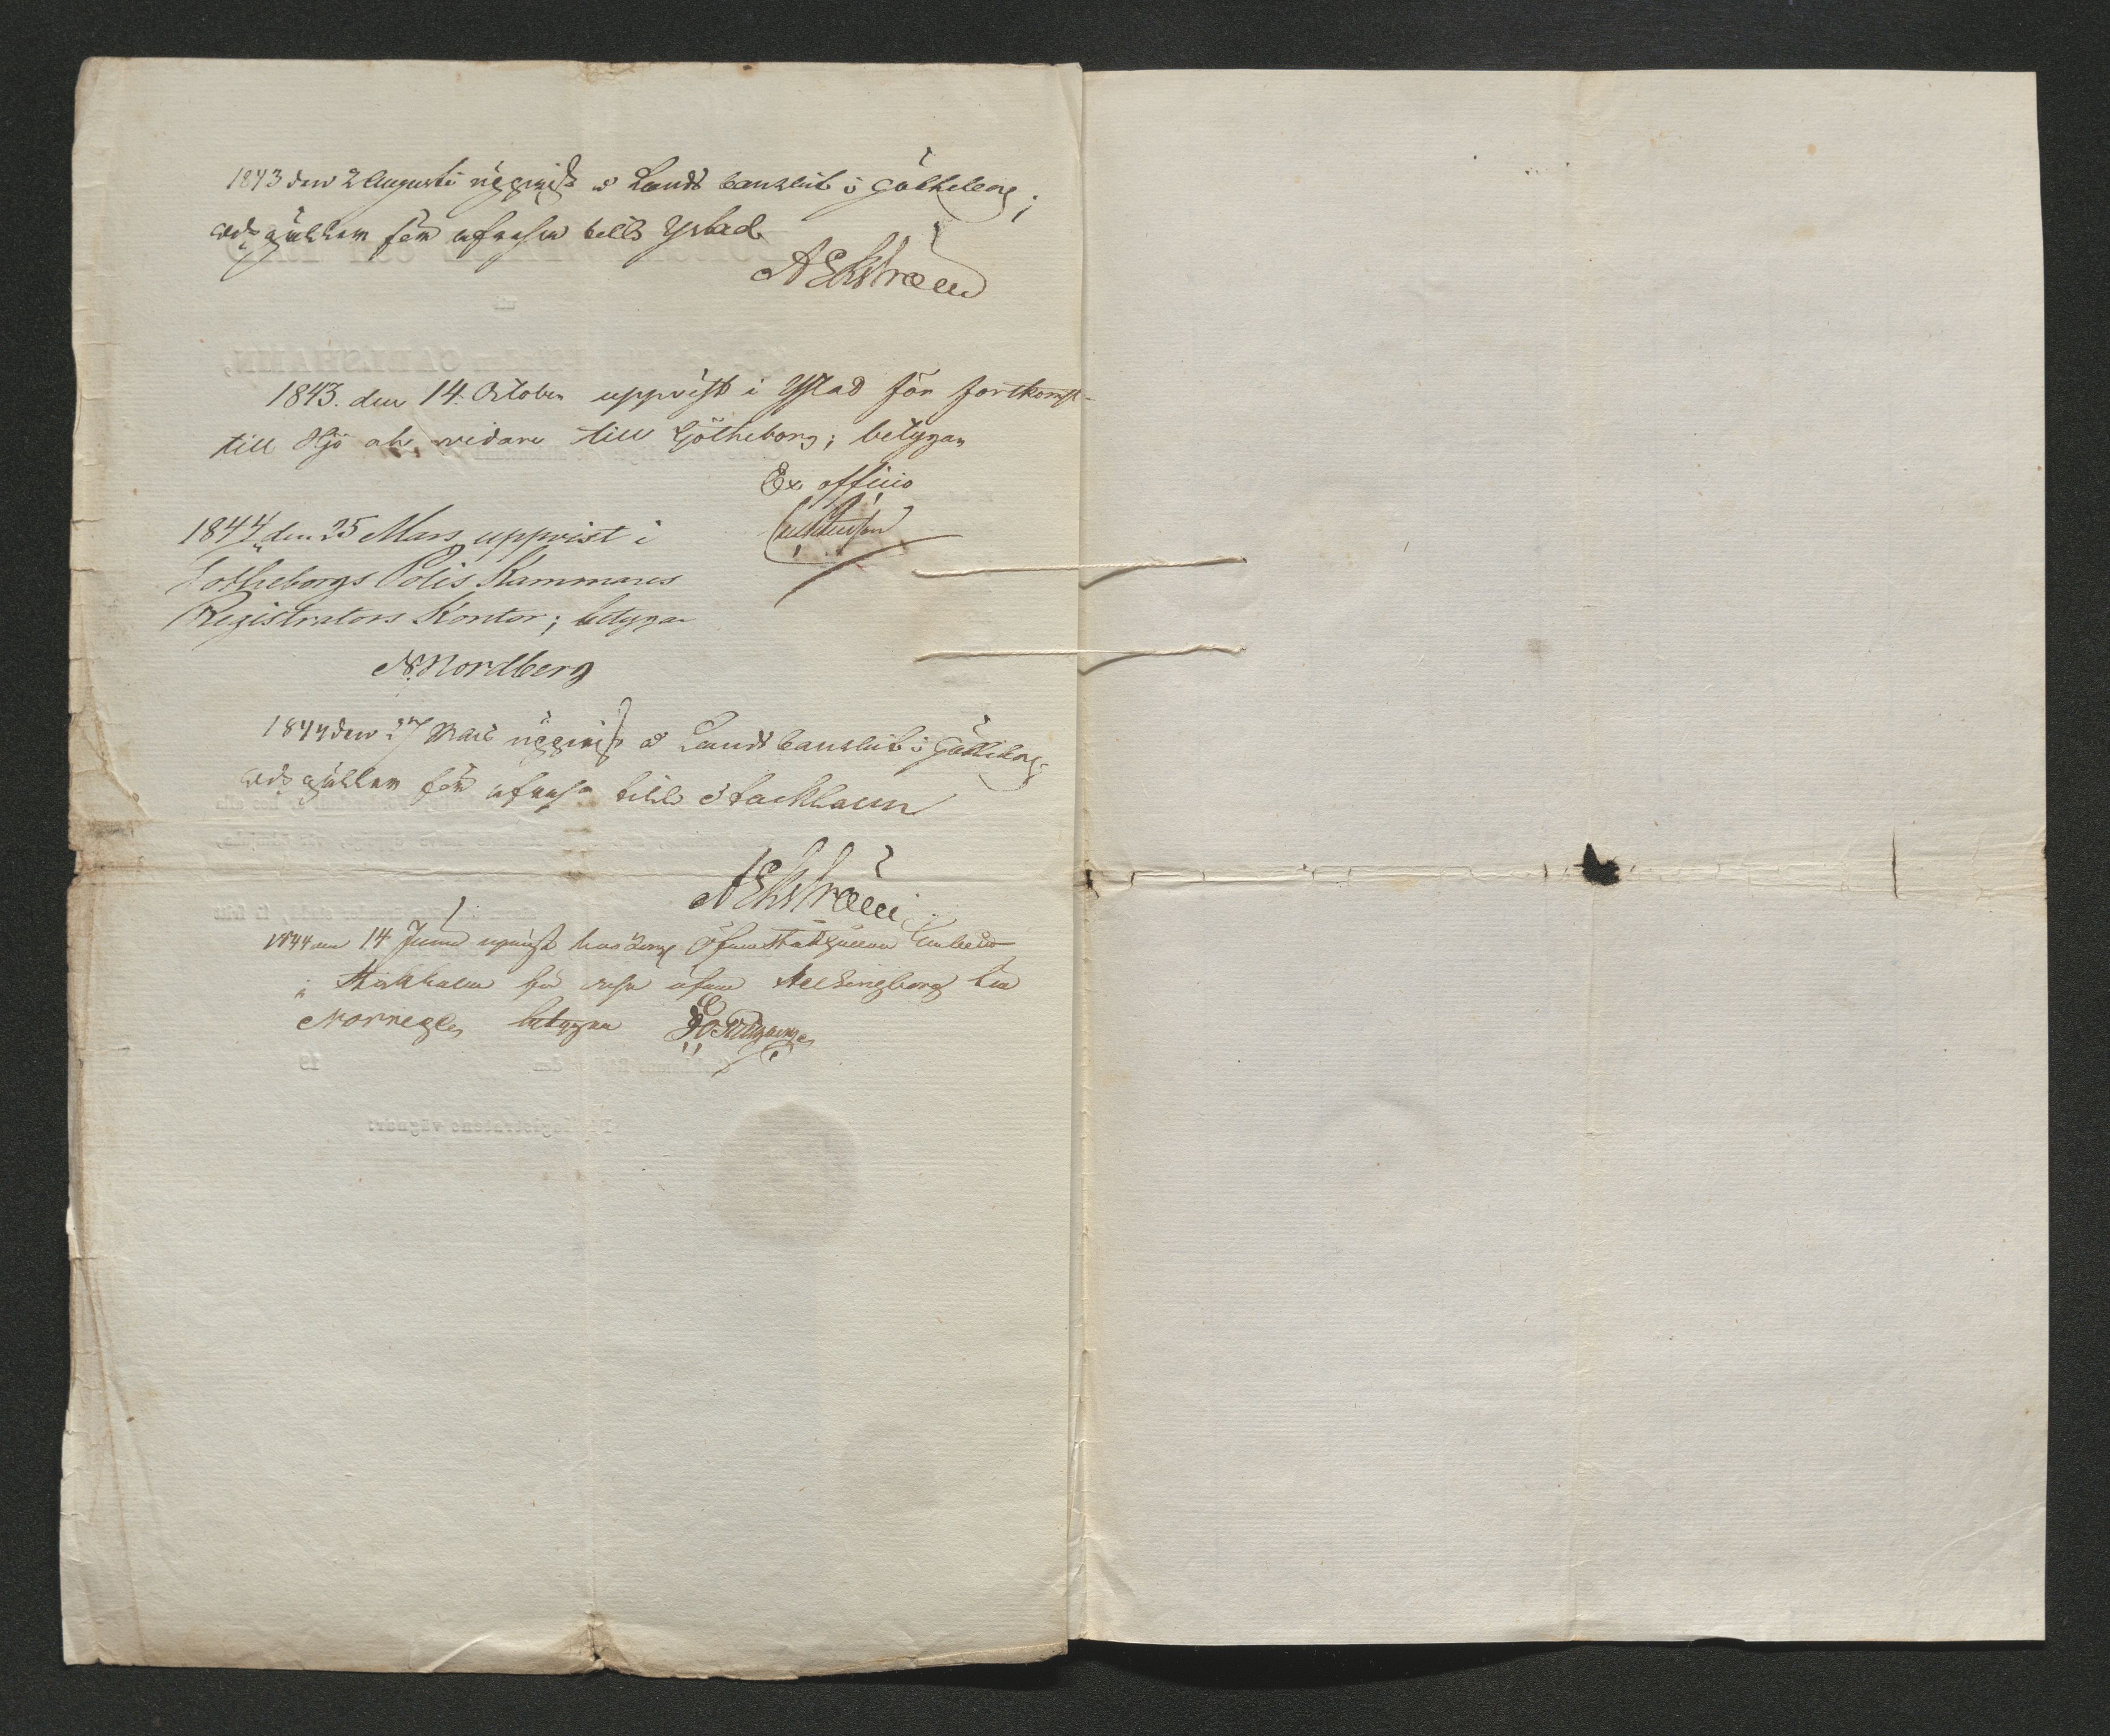 1843 den 2 Augusti uppvist å Lands Cansliet i Götheborg;
och gäller för afresa till Ystad
A Ekström
1843. den 14. October uppvist i Ystad för fortkomst
till Hjo och vidare till Götheborg; betygar
Ex officio
1844 den 25 Mars uppvist i
Götheborgs Polis Kammares
Registrators Kontor; betygar
N. Nordberg
1844 den 27 Mars uppvist å Lands Cansliet i Götheborg
och gäller för afresa till Stockholm
A Ekström
1844 den 14 Juni uppvist hos Öfver Ståthållare Embetet
i Stockholm för resa öfver Helsingborg till
Norrege, betygar